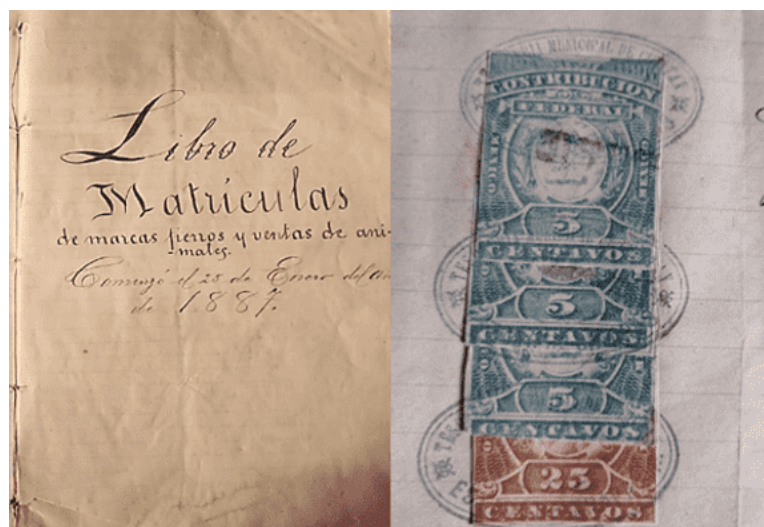 Libro de
Matrículas
de marcas fierros y ventas de ani-
-males.
Comenzó el 25 de Enero del
de 1887.
MUNICIPAL DE
CONTRIBUCION
FEDERAL
MEXICO
5
CENTAVOS
5
CENTAVOS
5
CENTAVOS
25
CENTAVOS